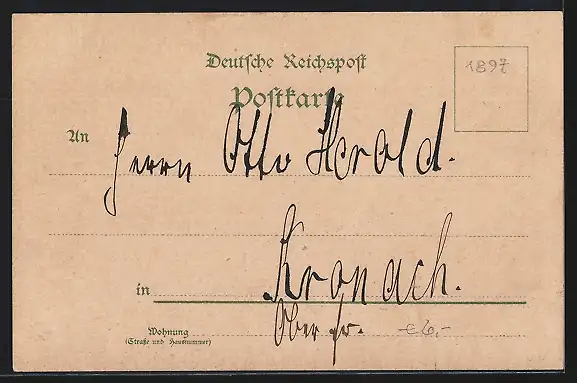 Deutsche Reichspost
Postkarte
1897
An Herrn Otto Herold.
in Kronach.
Oberfr.
Wohnung
(Straße und Hausnummer)